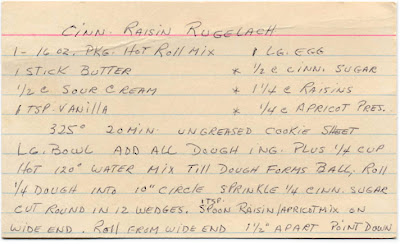 CINN. RAISIN RUGELACH
1- 16 OZ. PKG. HOT ROLL MIX 1 LG. EGG
1 STICK BUTTER * 1/2 C CINN. SUGAR
1/2 C SOUR CREAM * 1 1/4 C RAISINS
1 TSP. VANILLA * 1/4 C APRICOT PRES.
325° 20 MIN. UNGREASED COOKIE SHEET
LG. BOWL ADD ALL DOUGH ING. PLUS 1/4 CUP
HOT 120° WATER MIX TILL DOUGH FORMS BALL, ROLL
1/4 DOUGH INTO 10" CIRCLE SPRINKLE 1/4 CINN. SUGAR
CUT ROUND IN 12 WEDGES. 1 TSP. SPOON RAISIN/APRICOT MIX ON
WIDE END. ROLL FROM WIDE END 1 1/2" APART POINT DOWN